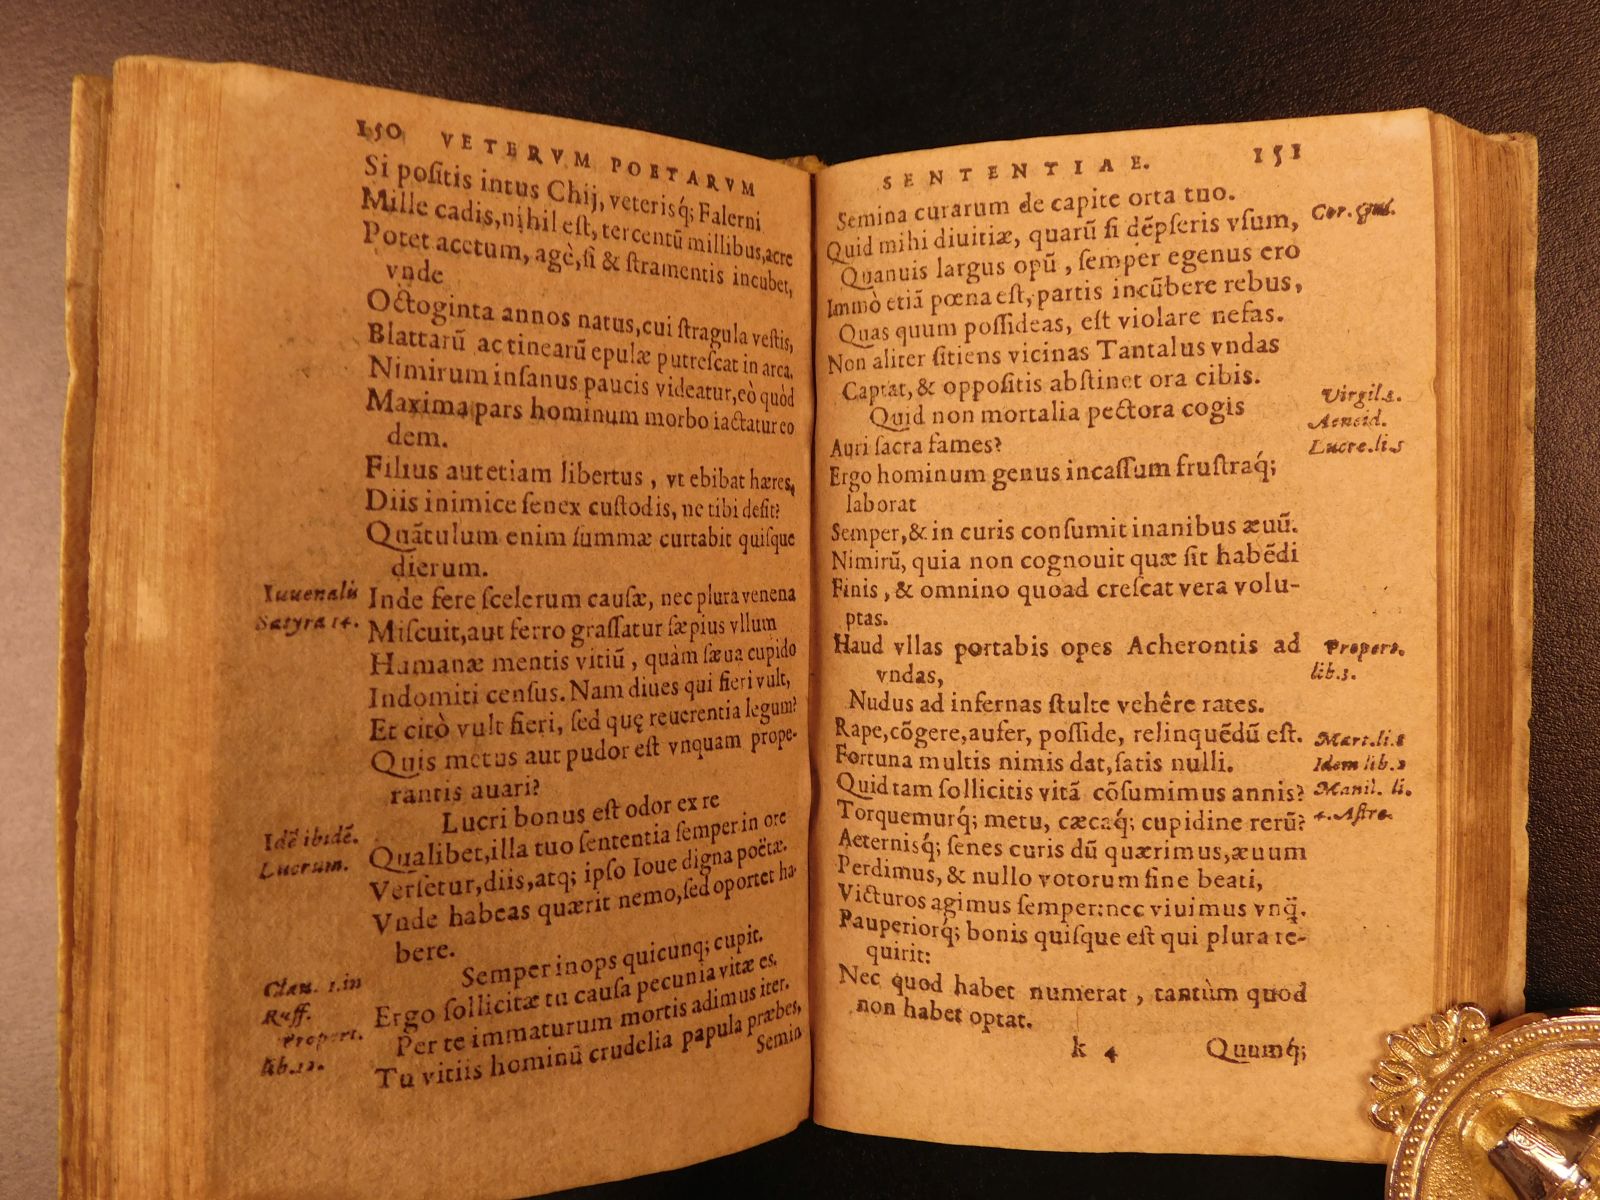 150 VETERVM POETARVM
Si poſitis intus Chij, veterisq́; Falerni
Mille cadis, nihil eſt, tercentũ millibus, acre
Potet acetum, agè, ſi & ſtramentis incubet,
vnde
Octoginta annos natus, cui ſtragula veſtis,
Blattarũ ac tinearũ epulæ putreſcat in arca.
Nimirum inſanus paucis videatur, eò quòd
Maxima pars hominum morbo iactatur eo
dem.
Filius aut etiam libertus, vt ebibat hæres,
Diis inimice ſenex cuſtodis, ne tibi deſit?
Quãtulum enim ſummæ curtabit quiſque
dierum.
Iuuenalis
Satyra 14.
Inde fere ſcelerum cauſæ, nec plura venena
Miſcuit, aut ferro graſſatur ſæpius vllum
Humanæ mentis vitiũ, quàm ſæua cupido
Indomiti cenſus. Nam diues qui fieri vult,
Et citò vult fieri, ſed quę reuerentia legum?
Quis metus aut pudor eſt vnquam prope-
rantis auari?
Idẽ ibidẽ.
Lucrum.
Lucri bonus eſt odor ex re
Qualibet, illa tuo ſententia ſemper in ore
Verſetur, diis, atq; ipſo Ioue digna poëtæ.
Vnde habeas quærit nemo, ſed oportet ha-
bere.
Clau. 1. in
Ruff.
Semper inops quicunq; cupit.
Propert.
lib.
Ergo ſollicitæ tu cauſa pecunia vitæ es.
Per te immaturum mortis adimus iter.
Tu vitiis hominũ crudelia papula præbes,
Semin
SENTENTIAE. 151
Semina curarum de capite orta tuo.
Cor. Gal.
Quid mihi diuitiæ, quarũ ſi dẽpſeris vſum,
Quanuis largus opũ, ſemper egenus ero
Immò etiã pœna eſt, partis incũbere rebus,
Quas quum poſſideas, eſt violare nefas.
Non aliter ſitiens vicinas Tantalus vndas
Captat, & oppoſitis abſtinet ora cibis.
Virgil.
Aeneid.
Quid non mortalia pectora cogis
Auri ſacra fames?
Lucre. li. 5
Ergo hominum genus incaſſum fruſtraq́;
laborat
Semper, & in curis conſumit inanibus æuũ.
Nimirũ, quia non cognouit quæ ſit habẽdi
Finis, & omnino quoad creſcat vera volu-
ptas.
Propers.
lib. 3.
Haud vllas portabis opes Acherontis ad
vndas,
Nudus ad infernas ſtulte vehêre rates.
Mart. li. 8
Rape, cõgere, aufer, poſſide, relinquẽdũ eſt.
Idem lib. 2
Fortuna multis nimis dat, ſatis nulli.
Manil. li.
4. Aſtro.
Quid tam ſollicitis vitã cõſumimus annis?
Torquemurq́; metu, cæcaq́; cupidine rerũ?
Aeternisq́; ſenes curis dũ quærimus, æuum
Perdimus, & nullo votorum fine beati,
Victuros agimus ſemper: nec viuimus vnq̃.
Pauperiorq́; bonis quiſque eſt qui plura re-
quirit:
Nec quod habet numerat, tantùm quod
non habet optat.
k 4 Quumq́;